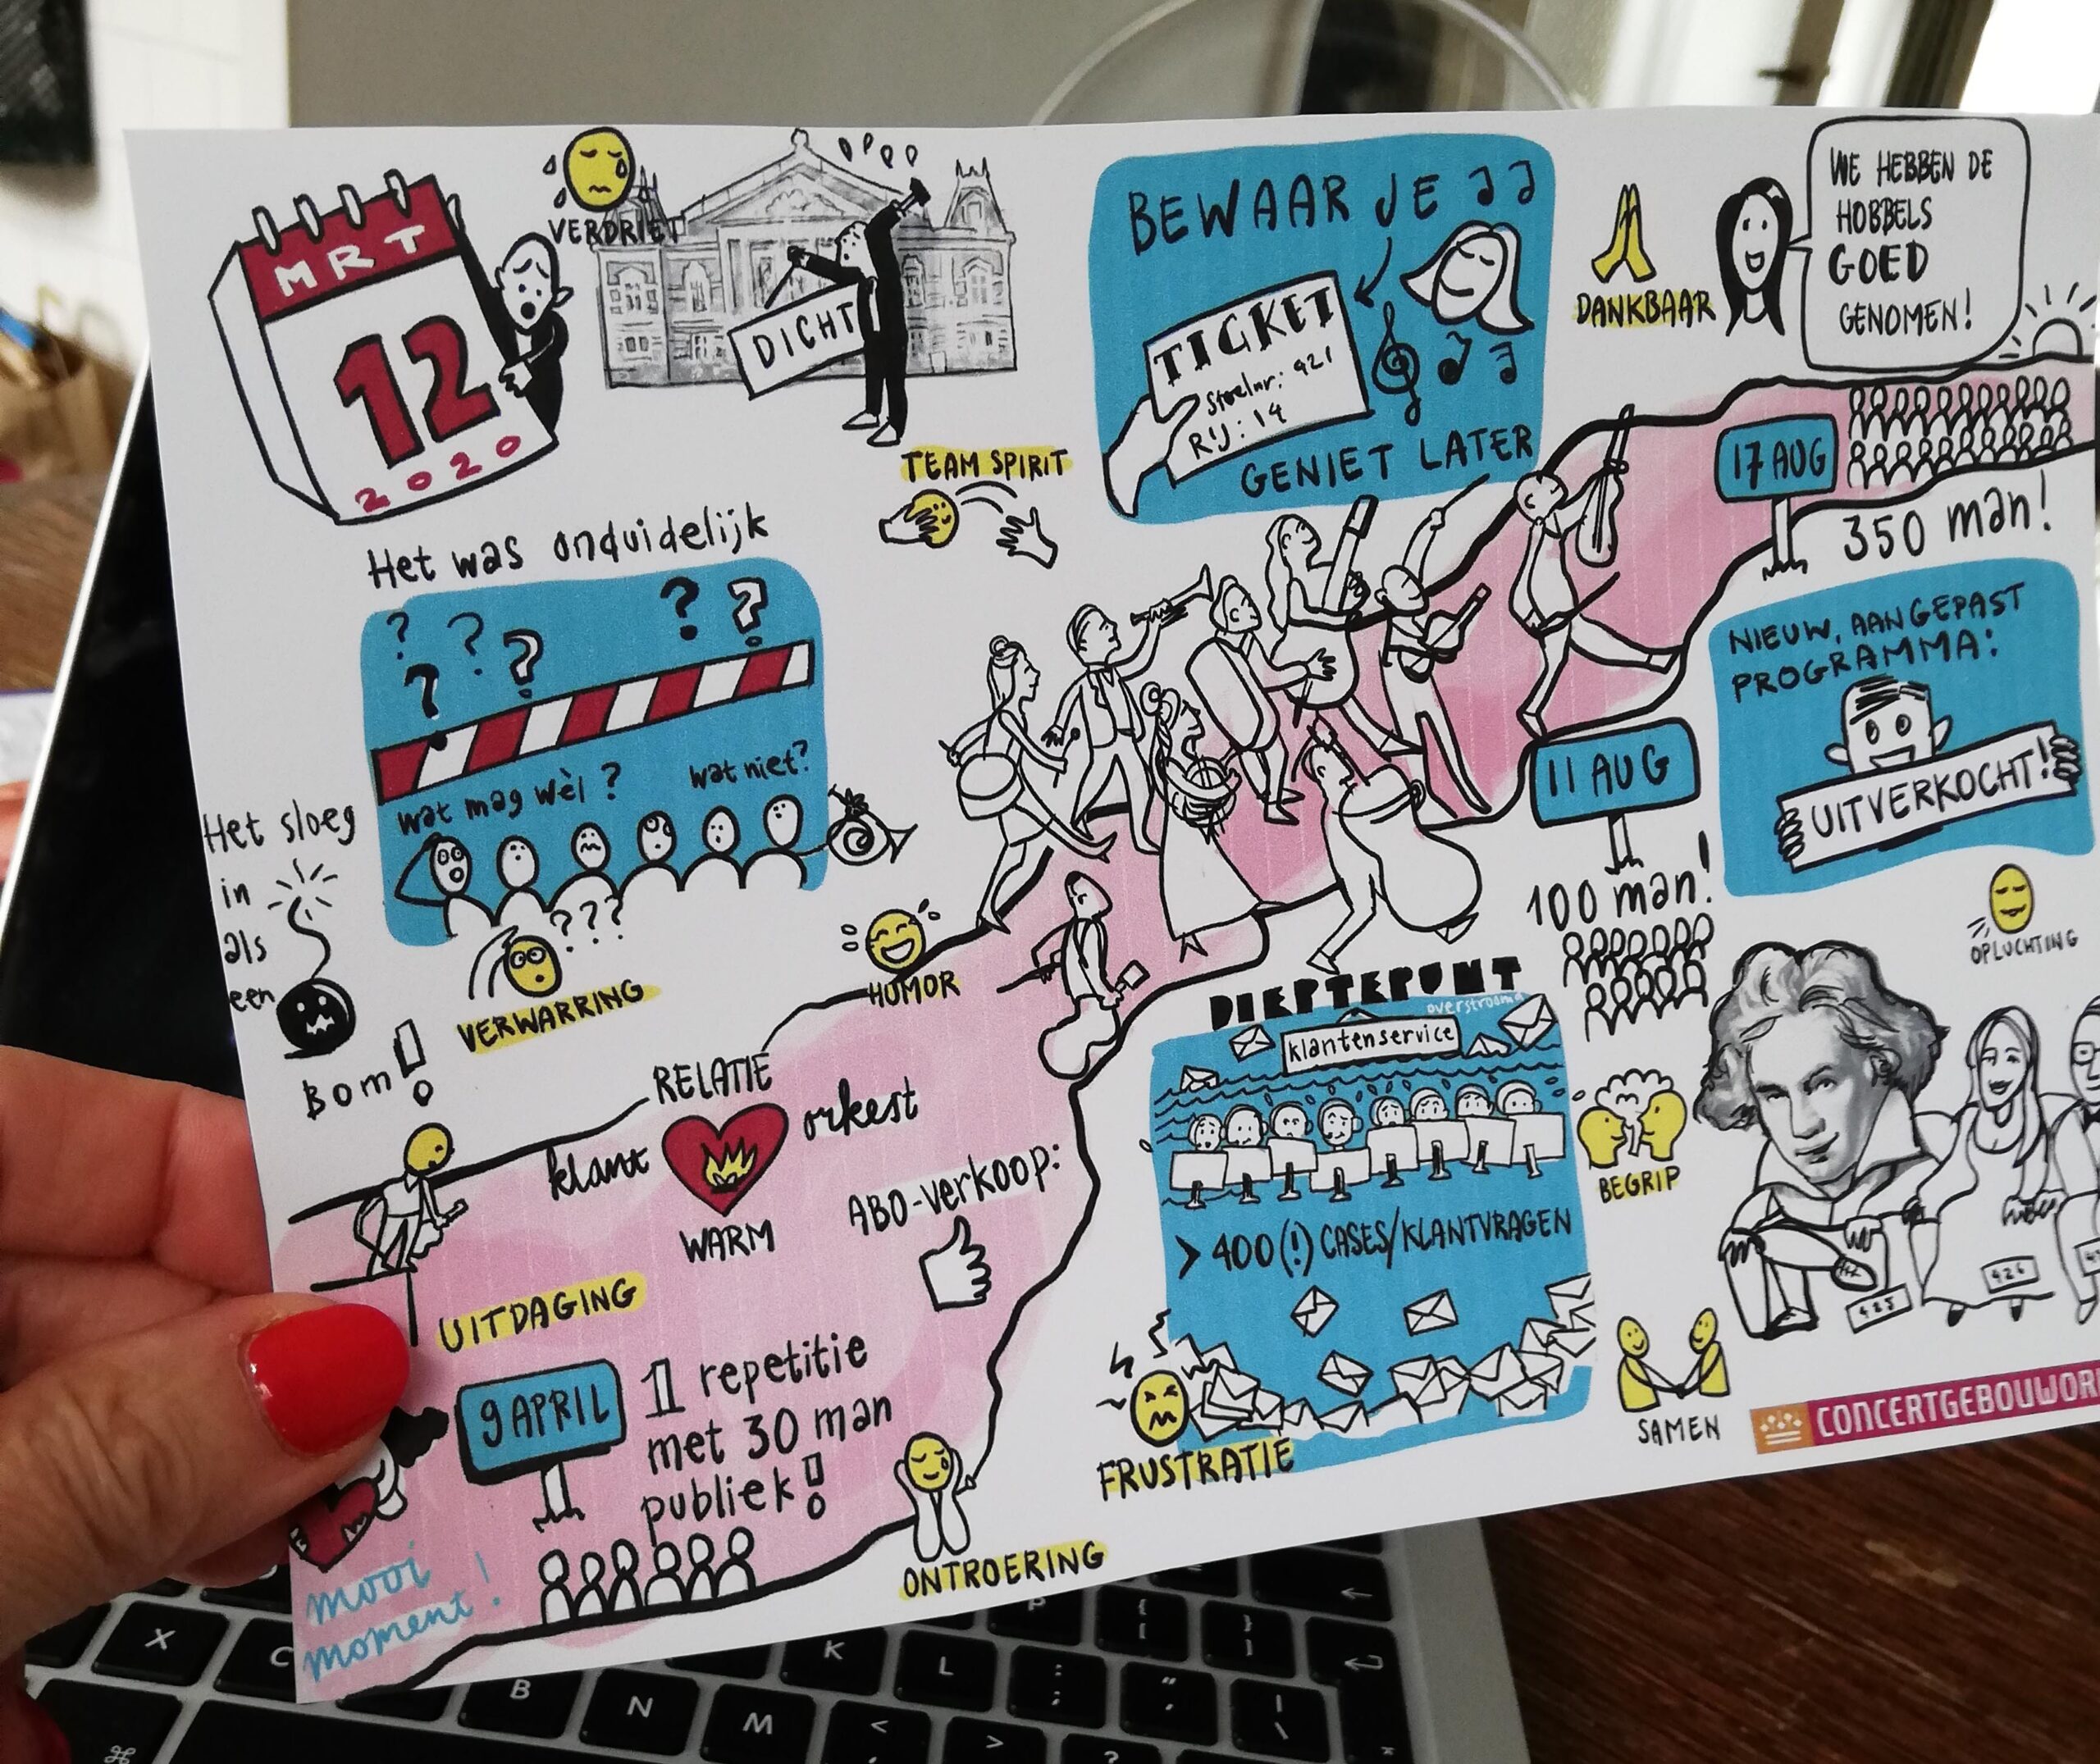 MRT
12
2020
VERDRIET
DICHT
TEAM SPIRIT
BEWAAR JE
TICKET
Stoelnr: 921
RIJ: 14
GENIET LATER
DANKBAAR
WE HEBBEN DE
HOBBELS
GOED
GENOMEN!
17 AUG
350 man!
Het was onduidelijk
? ? ? ? ? ?
wat mag wèl?
wat niet?
Het sloeg
in
als
een
Bom!
???
VERWARRING
HUMOR
11 AUG
100 man!
NIEUW, AANGEPAST
PROGRAMMA:
UITVERKOCHT!
OPLUCHTING
RELATIE
klant
orkest
WARM
ABO-verkoop:
UITDAGING
9 APRIL
1 repetitie
met 30 man
publiek!
mooi
moment!
ONTROERING
DIEPTEPUNT
klantenservice
> 400(!) CASES/KLANTVRAGEN
FRUSTRATIE
BEGRIP
425
426
SAMEN
CONCERTGEBOUWOR
X
C
B
N
M
K
L
P
{
[
}
]
:
;
"
<
>
?
|
\
⌘